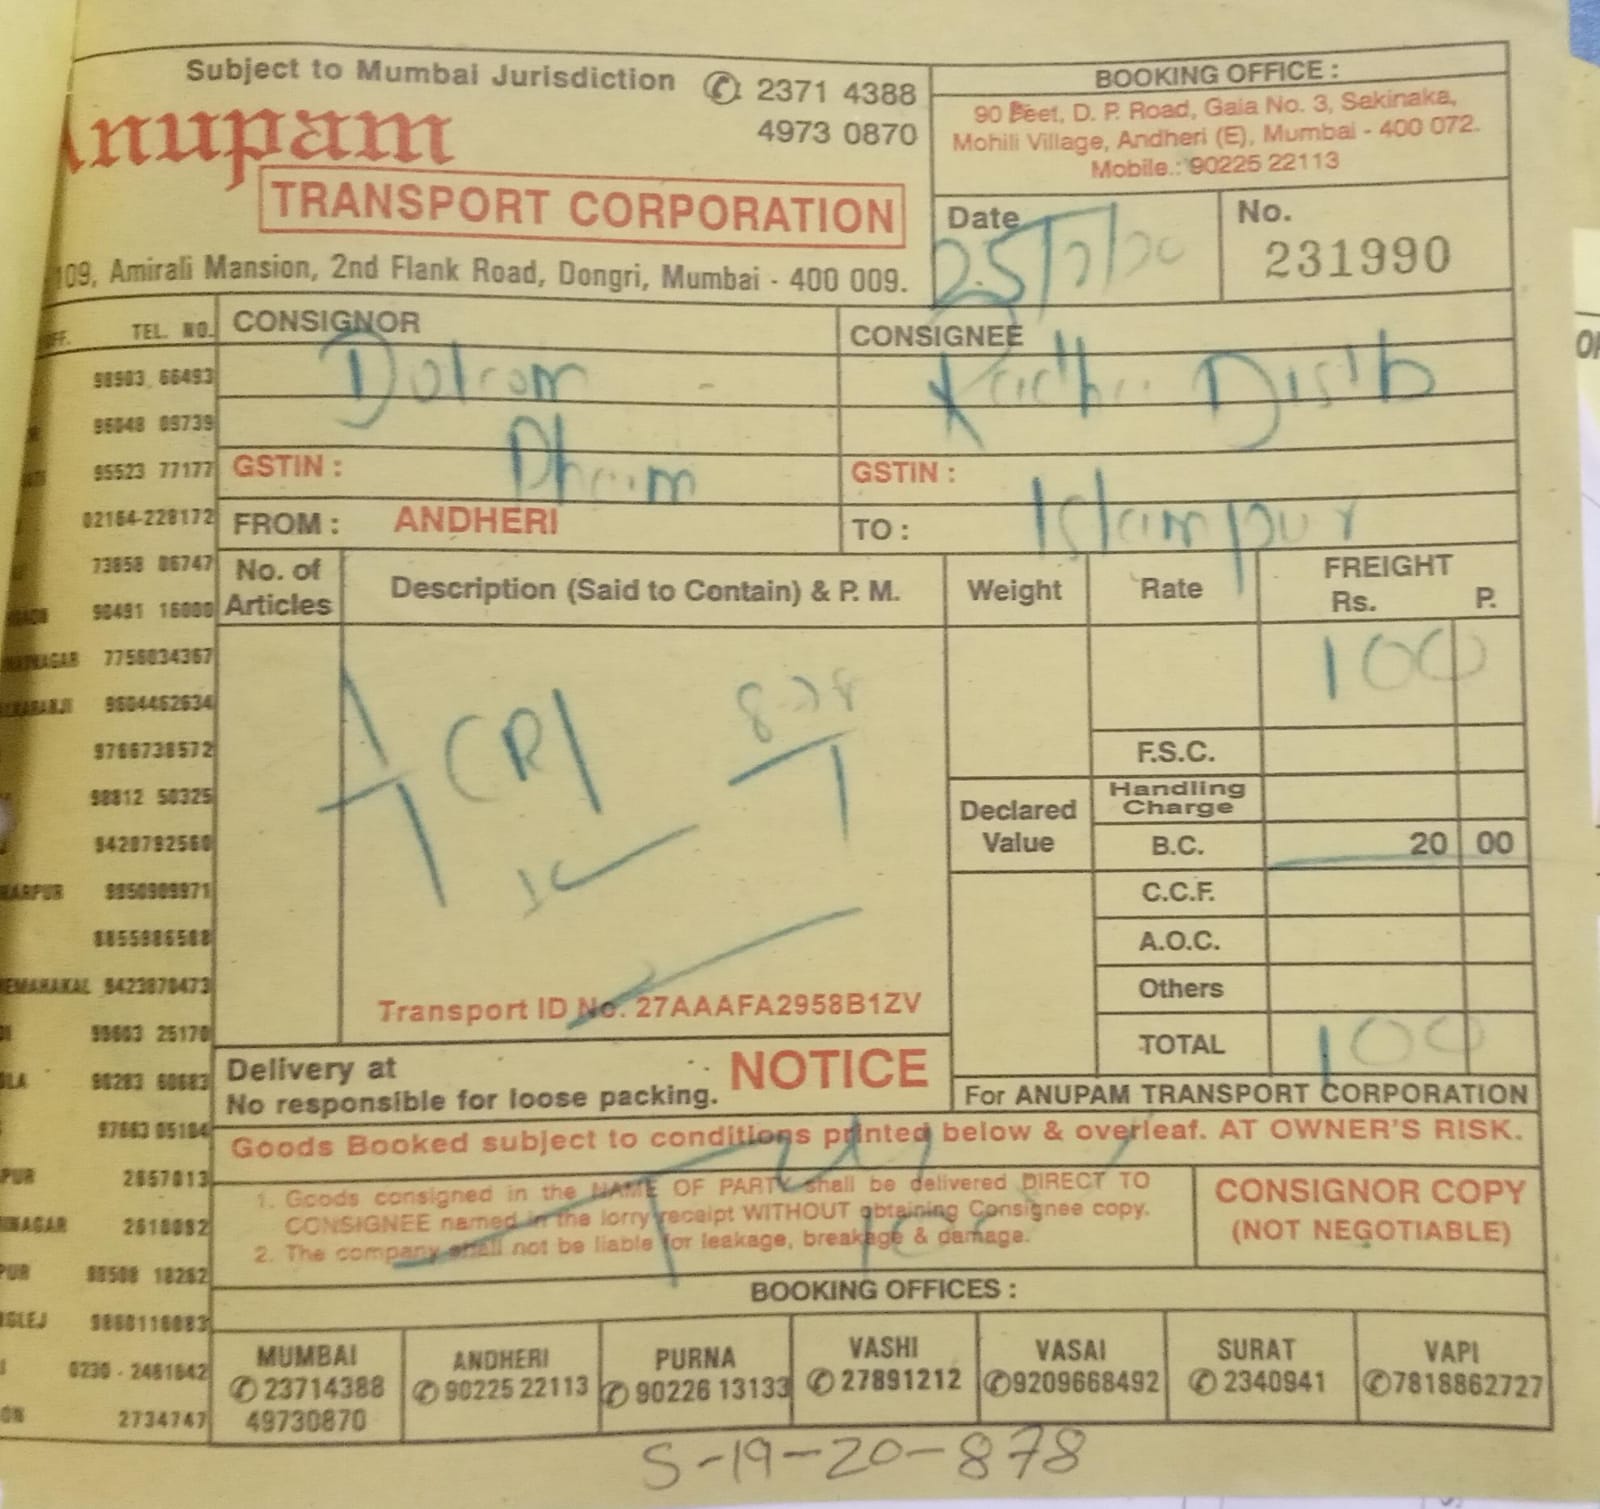 Subject to Mumbai Jurisdiction ✆ 2371 4388
4973 0870
Anupam
TRANSPORT CORPORATION
109, Amirali Mansion, 2nd Flank Road, Dongri, Mumbai - 400 009.
BOOKING OFFICE :
90 Feet, D. P. Road, Gala No. 3, Sakinaka,
Mohili Village, Andheri (E), Mumbai - 400 072.
Mobile.: 90225 22113
Date
No.
231990
TEL. NO.
98903 66493
96048 09739
95523 77177
02164-228172
73858 06747
90491 16000
7756034367
9604462634
9766738572
98812 50325
9420792560
9850909971
8855986588
9423870473
99603 25170
90283 60683
97663 05184
2657013
2618092
98508 18262
9860116083
0230 - 2461642
2734747
CONSIGNOR
CONSIGNEE
Distb
GSTIN :
GSTIN :
FROM : ANDHERI
TO : Islampur
No. of Articles
Description (Said to Contain) & P. M.
Weight
Rate
FREIGHT
Rs. P.
100
878
F.S.C.
Declared Value
Handling Charge
B.C. 20 00
C.C.F.
A.O.C.
Others
TOTAL 100
Transport ID No. 27AAAFA2958B1ZV
Delivery at
NOTICE
No responsible for loose packing.
For ANUPAM TRANSPORT CORPORATION
Goods Booked subject to conditions printed below & overleaf. AT OWNER'S RISK.
1. Goods consigned in the NAME OF PARTY shall be delivered DIRECT TO
CONSIGNEE named in the lorry receipt WITHOUT obtaining Consignee copy.
2. The company shall not be liable for leakage, breakage & damage.
CONSIGNOR COPY
(NOT NEGOTIABLE)
BOOKING OFFICES :
MUMBAI
✆ 23714388
49730870
ANDHERI
✆ 90225 22113
PURNA
✆ 90226 13133
VASHI
✆ 27891212
VASAI
✆9209668492
SURAT
✆ 2340941
VAPI
✆7818862727
S-19-20-878